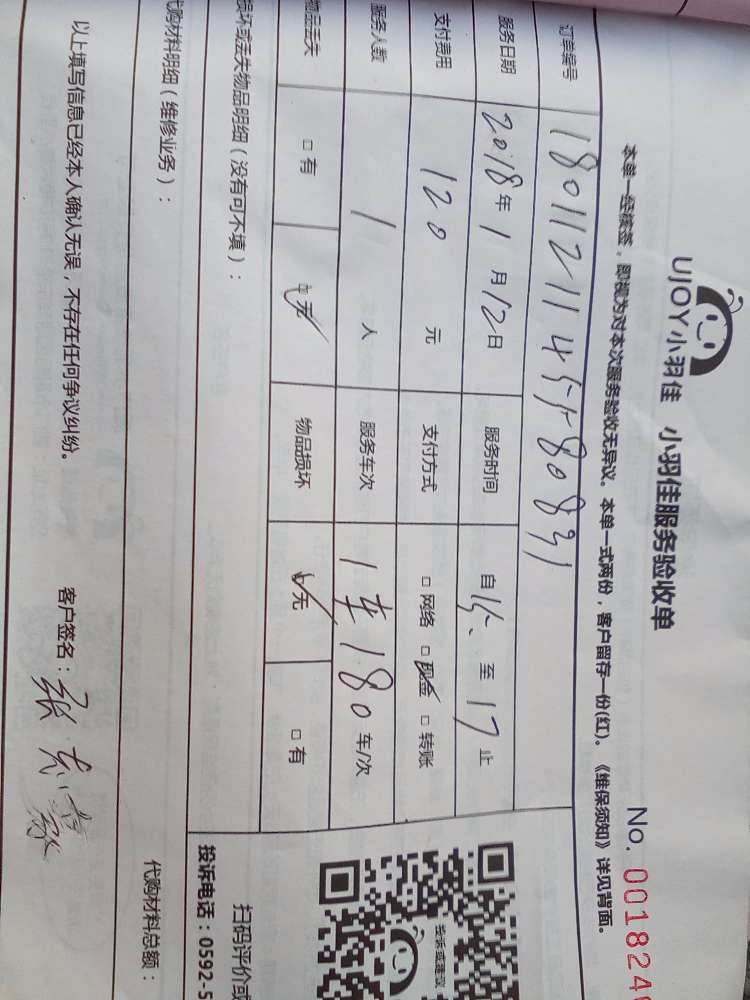 UJOY小羽佳 小羽佳服务验收单
No. 0018246
本单一经核签，即视为对本次服务验收无异议。本单一式两份，客户留存一份(红)。《维保须知》详见背面。
订单编号 180112114558083
服务日期 2018年1月12日 服务时间 自15、至17止
支付费用 120元 支付方式 □网络 □现金 □转账
服务人数 1人 服务车次 1车180车/次
物品丢失 □有 无 物品损坏 无 □有
损坏或丢失物品明细（没有可不填）：
代购材料明细（维修业务）：
代购材料总额：
以上填写信息已经本人确认无误，不存在任何争议纠纷。
客户签名：张
投诉或建议
扫码评价或
投诉电话：0592-5